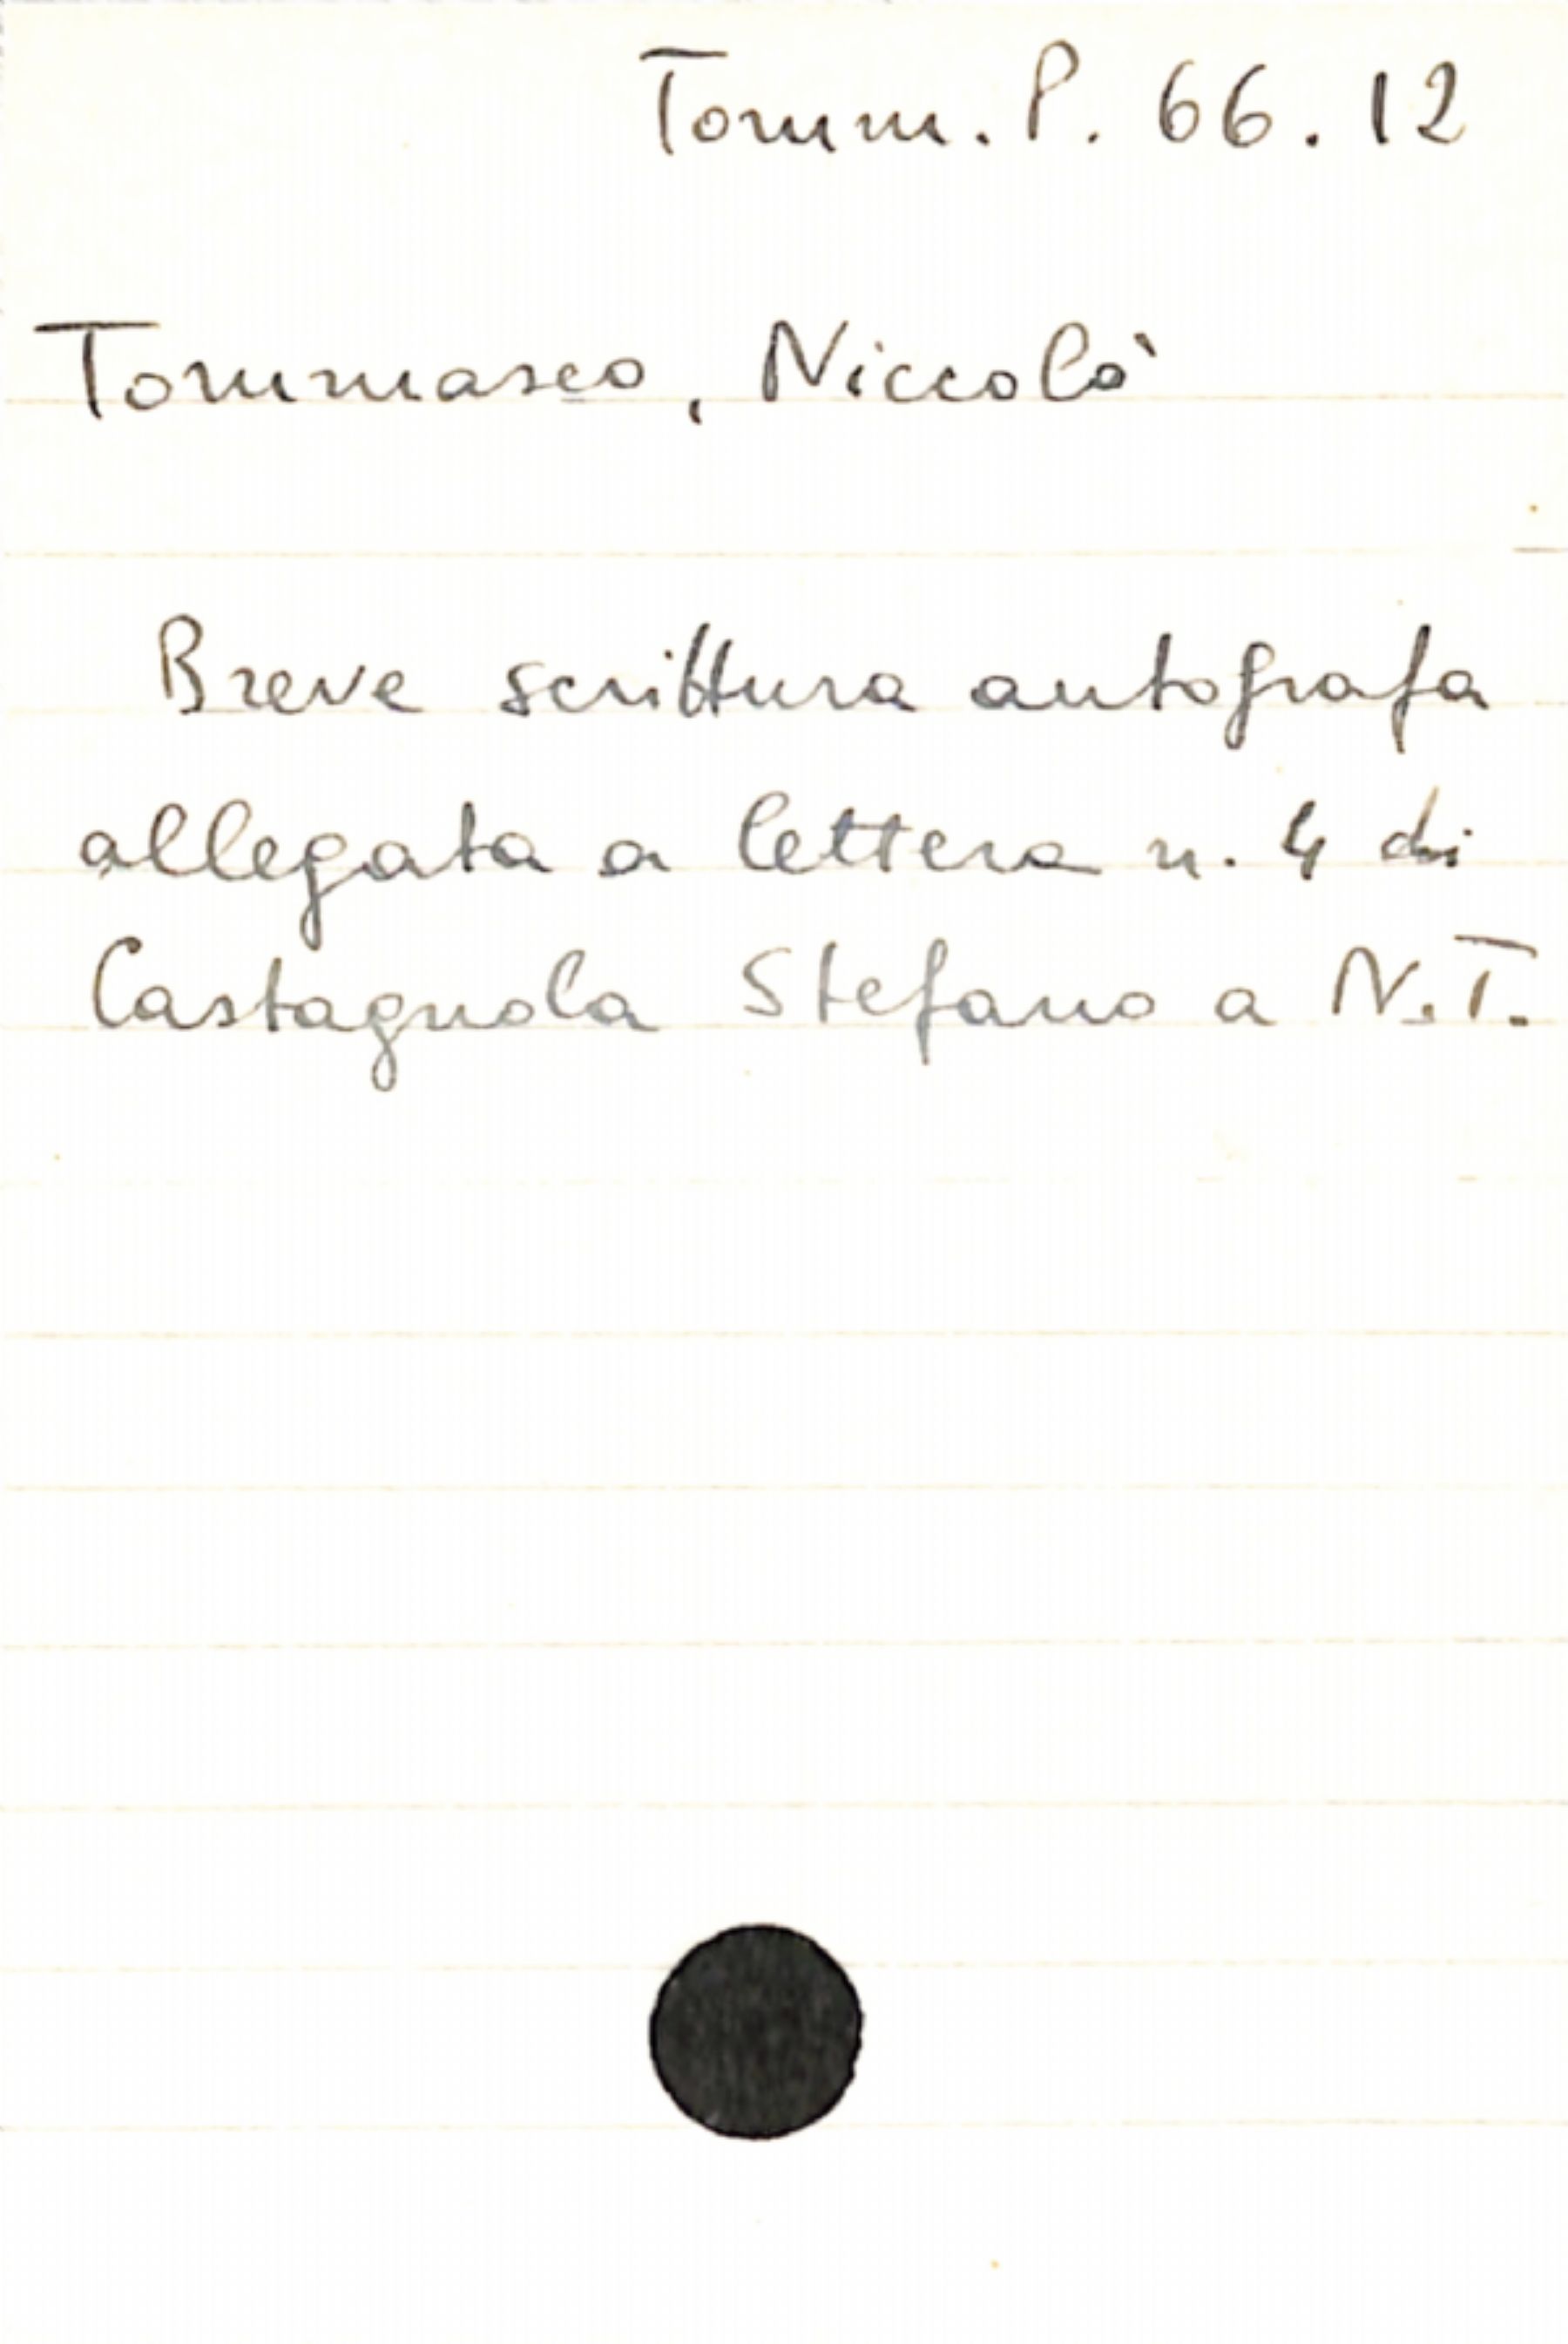 Tomm. P. 66.12
Tommaseo, Niccolò
Breve scrittura autografa
allegata a lettera n. 4 di
Castagnola Stefano a N.T.